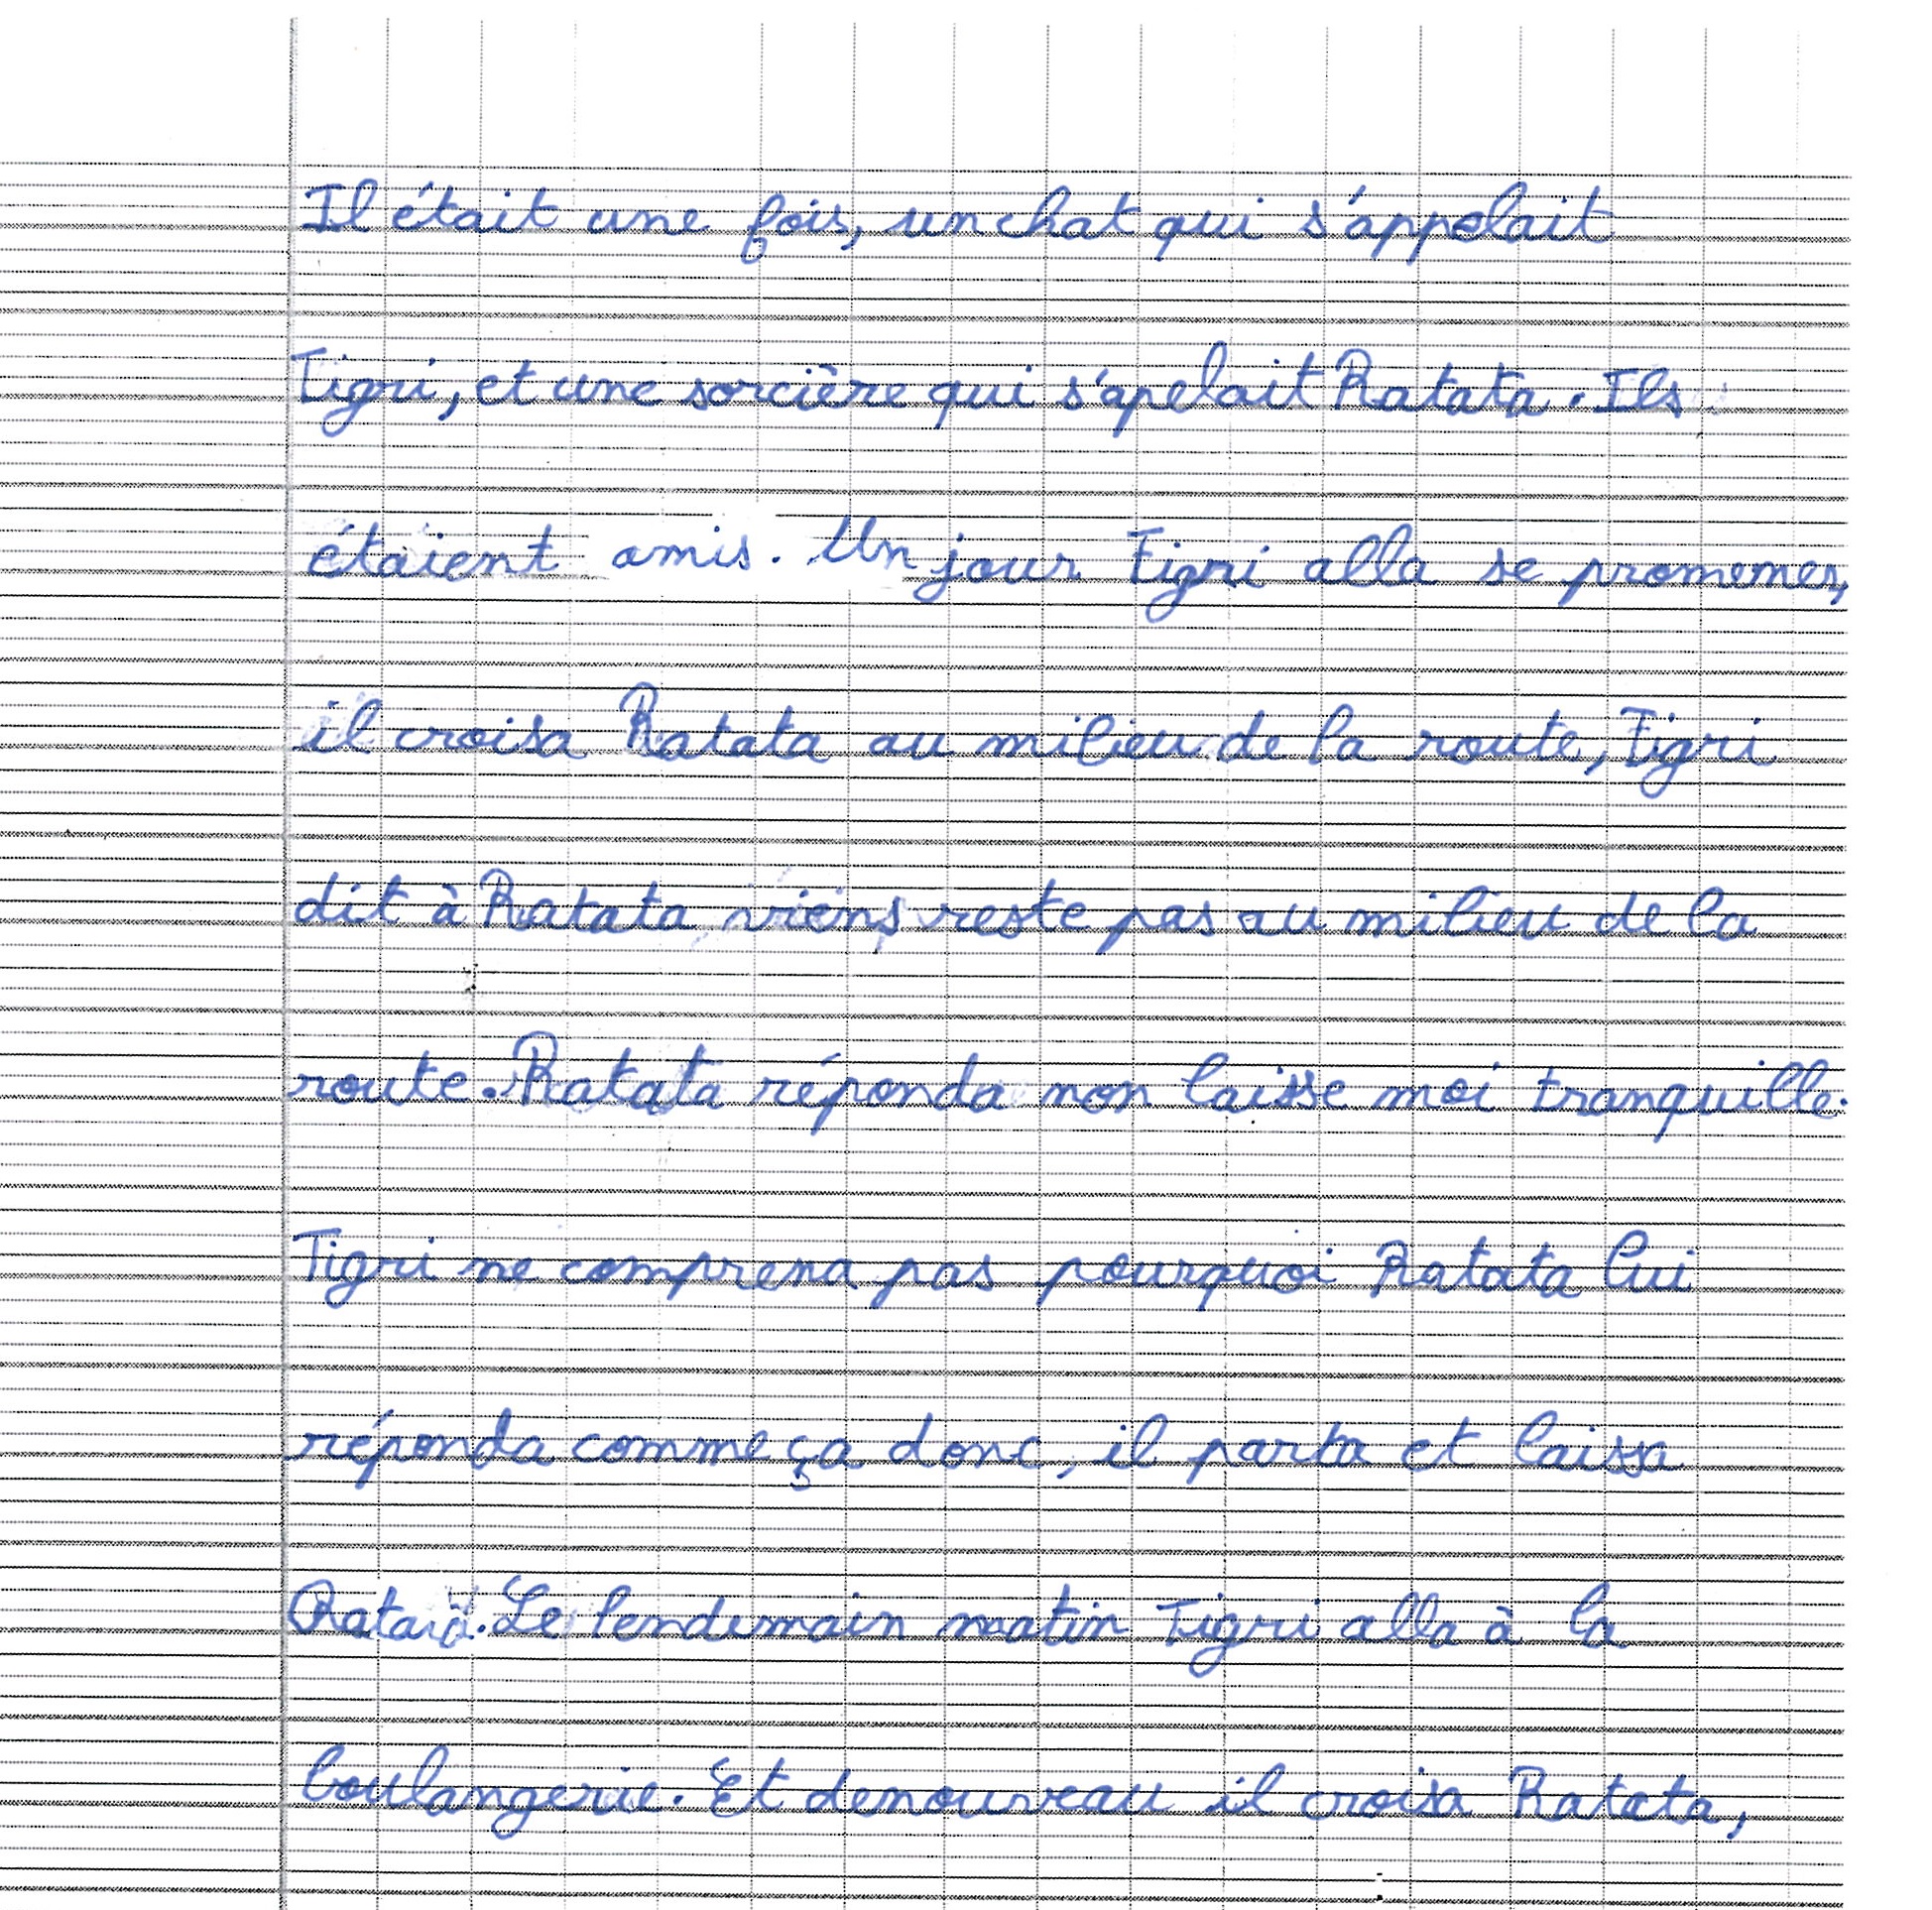 Il était une fois, un chat qui s'appelait
Tigri, et une sorcière qui s'apelait Ratata. Ils
étaient amis. Un jour Tigri alla se promener,
il croisa Ratata au milieu de la route, Tigri
dit à Ratata viens reste pas au milieu de la
route. Ratata réponda non laisse moi tranquille.
Tigri ne comprena pas pourquoi Ratata lui
réponda comme ça donc, il parta et laissa
Ratata. Le lendemain matin Tigri alla à la
boulangerie. Et denouveau il croisa Ratata,